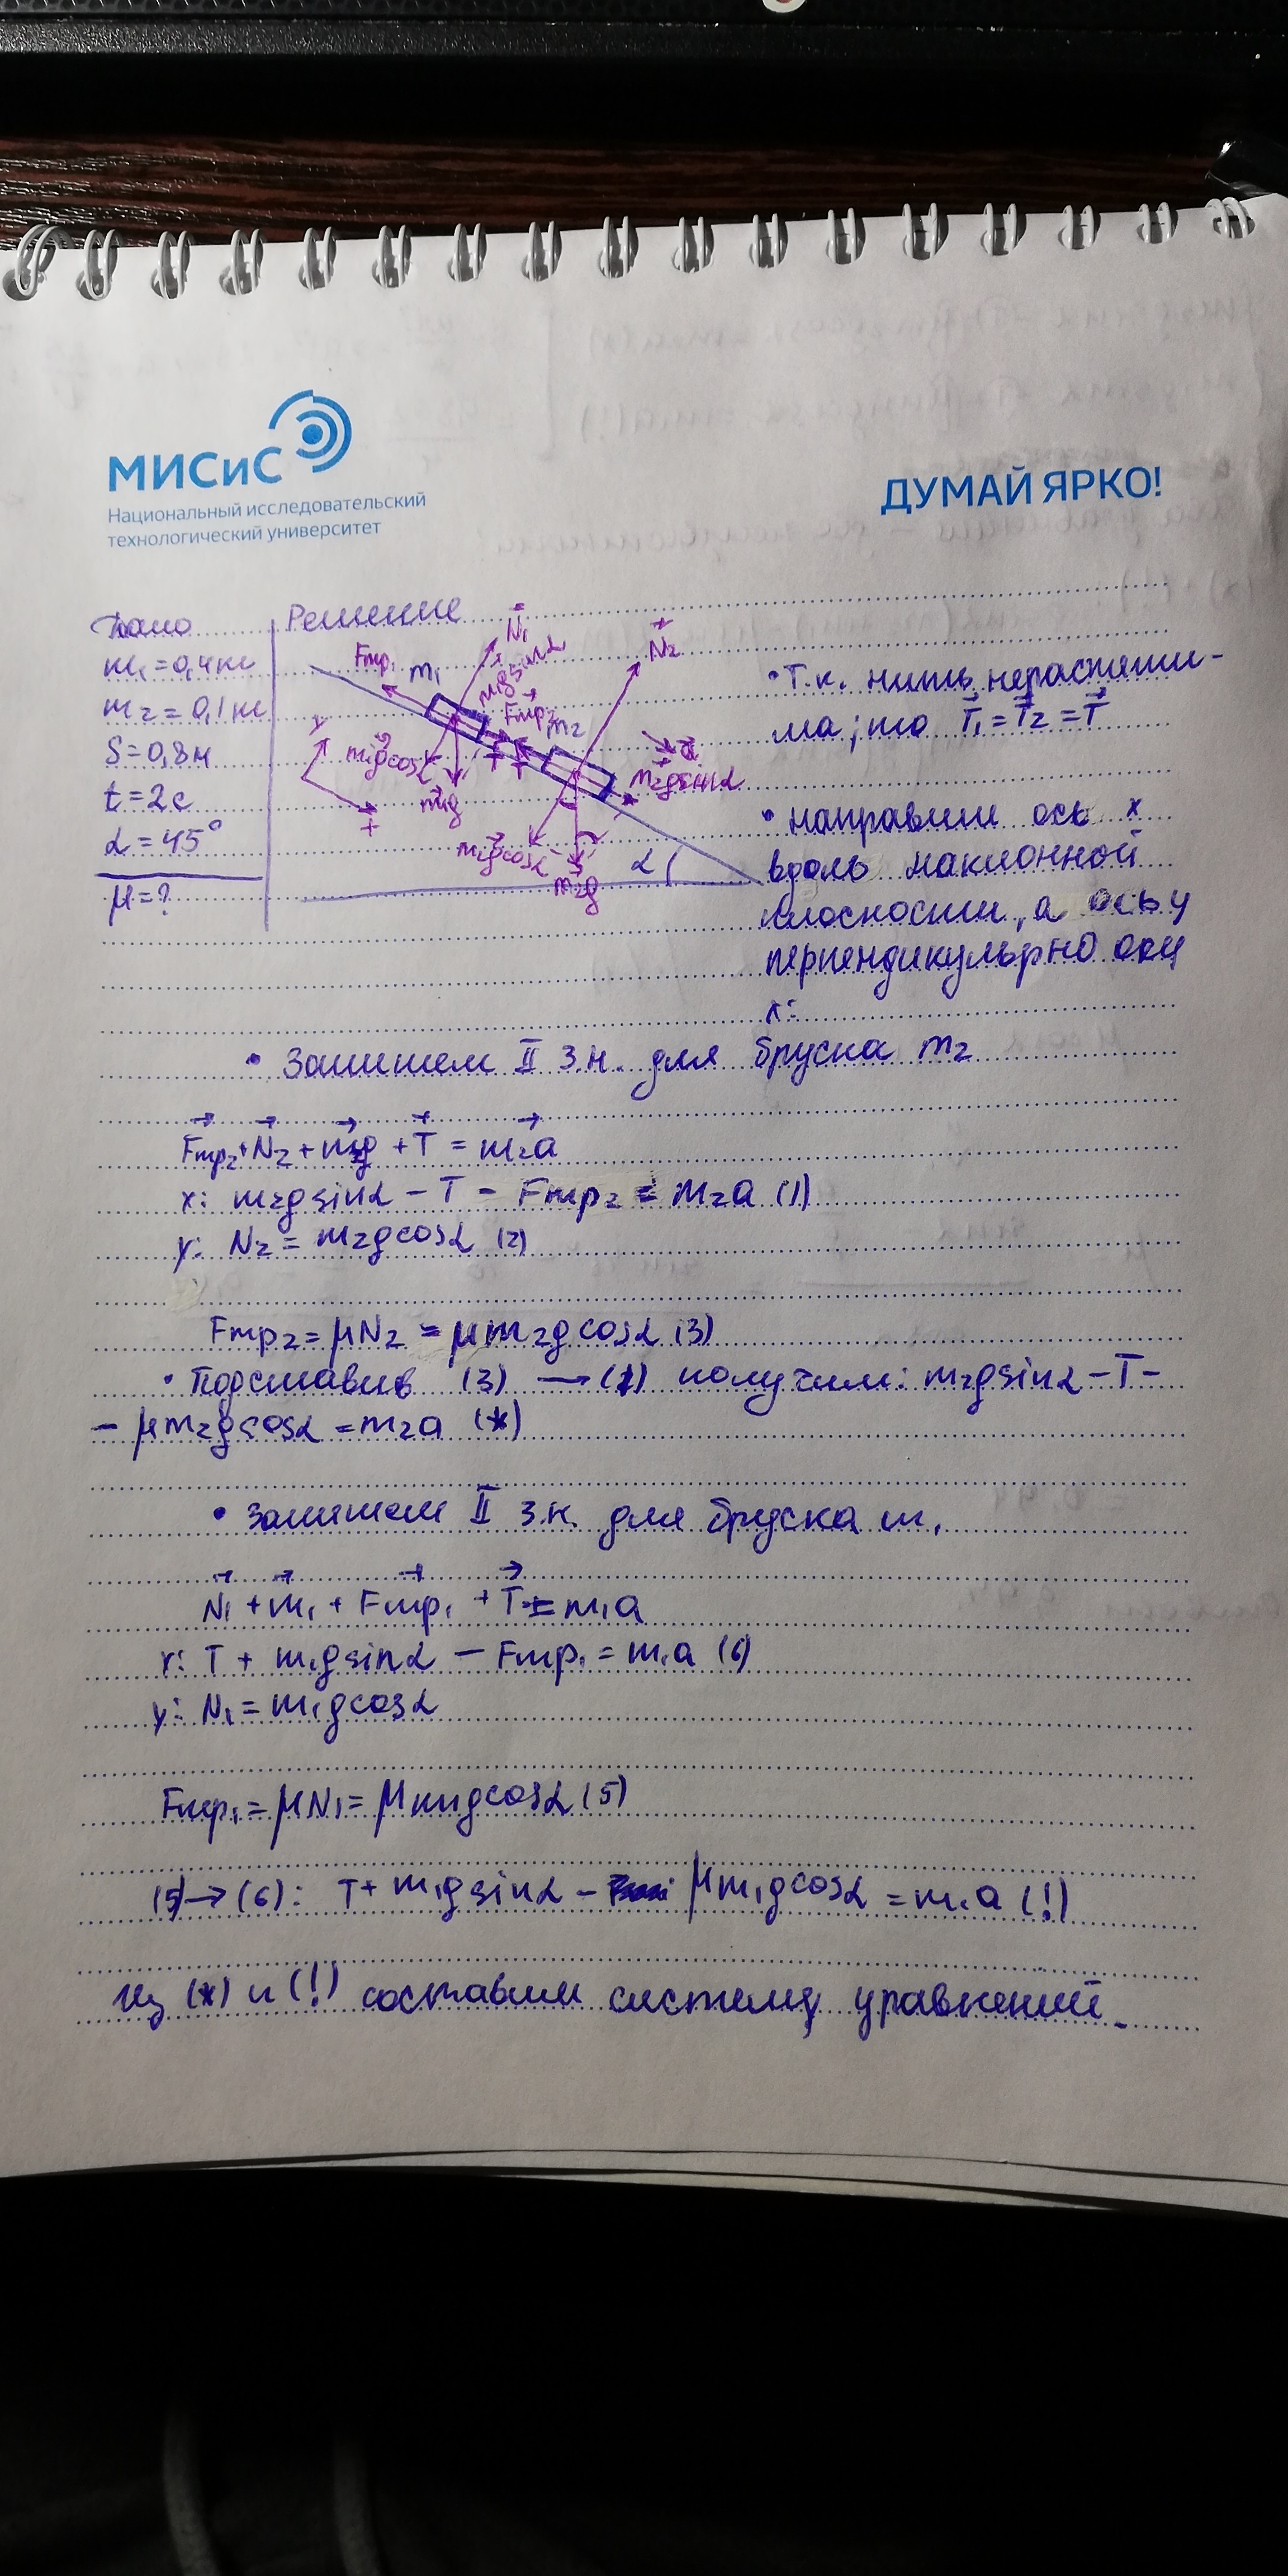 МИСиС
Национальный исследовательский
технологический университет
ДУМАЙ ЯРКО!
Дано
Решение
m₁=0,4кг
m₂=0,1кг
S=0,8м
t=2с
α=45°
μ=?
Fтр₁
m₁
N₁
m₁gsinα
Fтр₂
m₂
N₂
y
m₁gcosα
T
T
a
m₂gsinα
m₁g
x
m₂gcosα
m₂g
α
• Т.к. нить нерастяжи-
ма, то T₁=T₂=T
• направим ось x
вдоль наклонной
плоскости, а ось y
перпендикулярно оси
x:
• Запишем II з.н. для бруска m₂
Fтр₂+N₂+m₂g+T=m₂a
x: m₂gsinα-T-Fтр₂=m₂a (1)
y: N₂=m₂gcosα (2)
Fтр₂=μN₂=μm₂gcosα (3)
• Подставив (3)→(1) получим: m₂gsinα-T-
-μm₂gcosα=m₂a (*)
• Запишем II з.н. для бруска m₁
N₁+m₁+Fтр₁+T=m₁a
x: T+m₁gsinα-Fтр₁=m₁a (6)
y: N₁=m₁gcosα
Fтр₁=μN₁=μm₁gcosα (5)
(5)→(6): T+m₁gsinα-μm₁gcosα=m₁a (!)
Из (*) и (!) составим систему уравнений